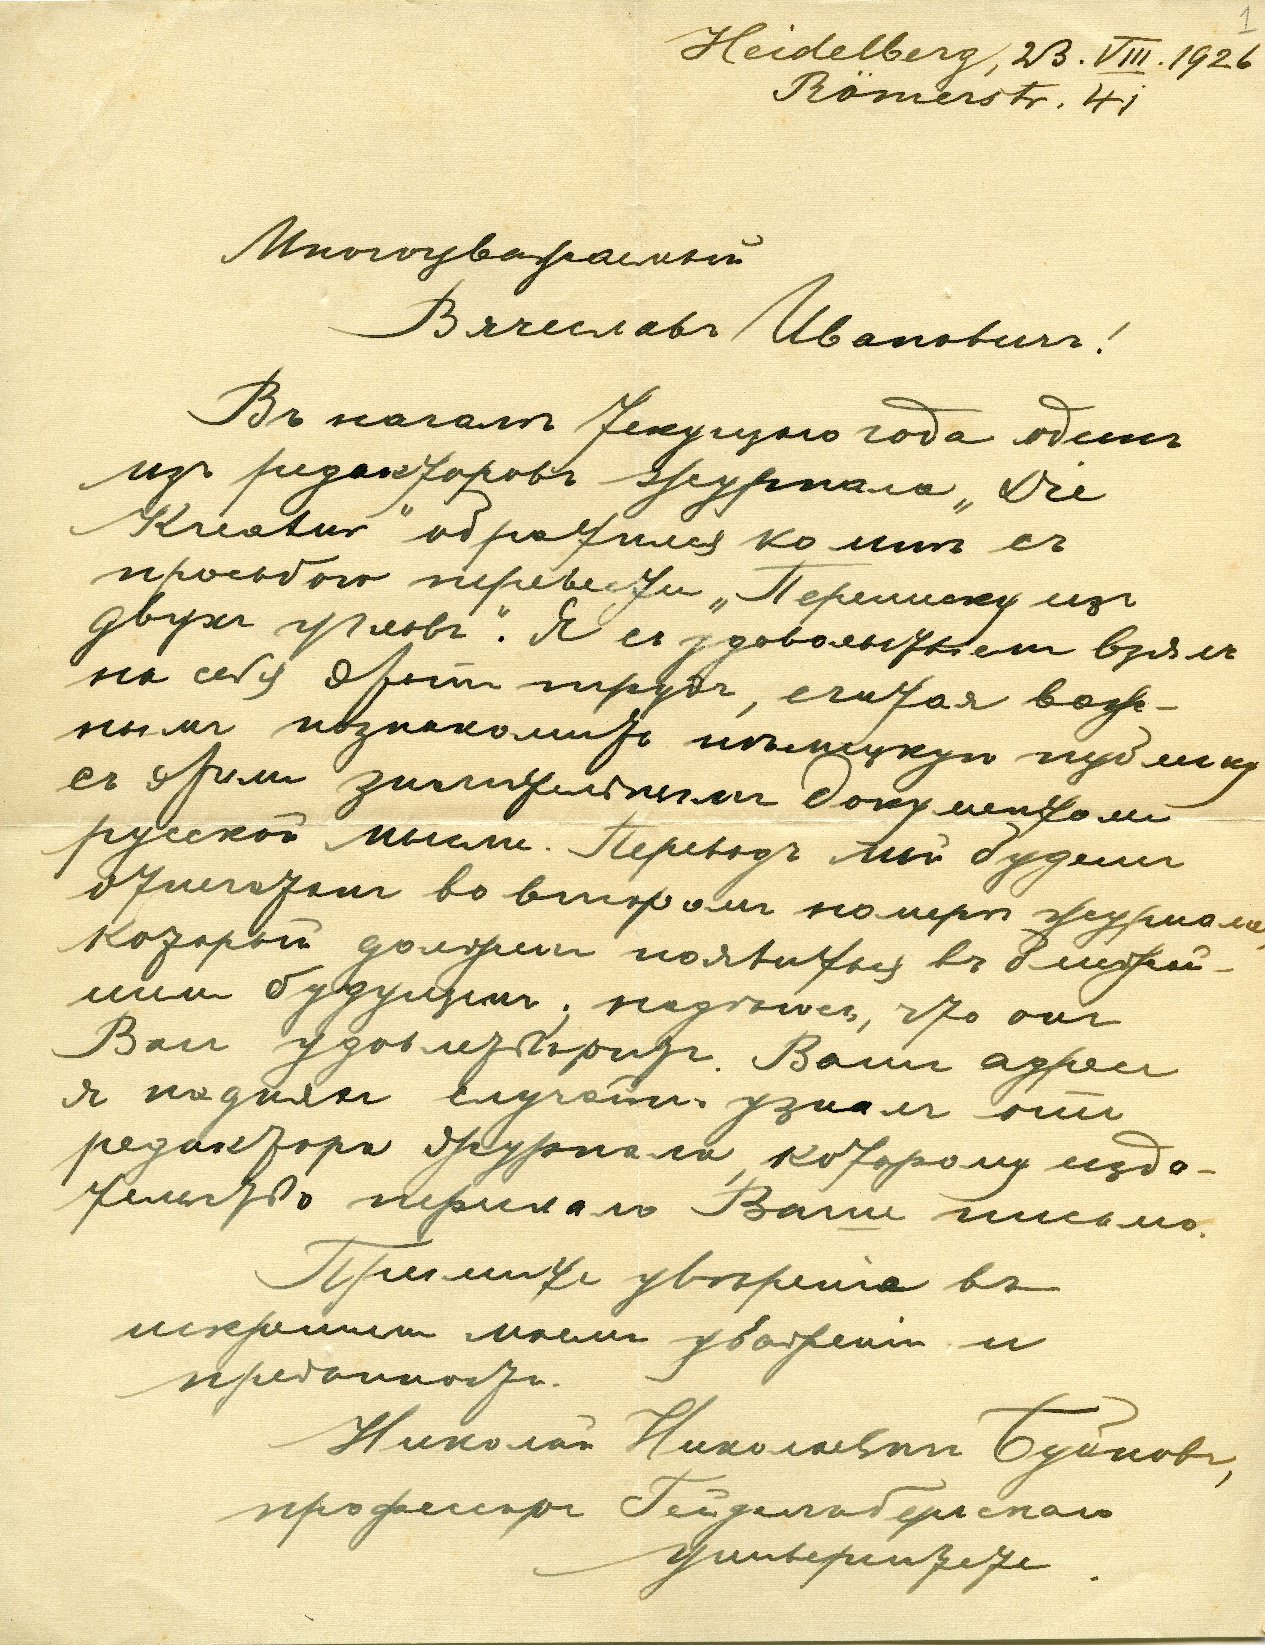 1
Heidelberg, 23. VIII. 1926
Römerstr. 41
Многоуважаемый
Вячеславъ Ивановичъ!
Въ началѣ текущаго года одинъ
изъ редакторовъ журнала „Die
Kreatur“ обратился ко мнѣ съ
просьбою перевести „Переписку изъ
двухъ угловъ“. Я съ удовольствіемъ взялъ
на себя этотъ трудъ, считая важ-
нымъ познакомить нѣмецкую публику
съ этимъ значительнымъ документомъ
русской мысли. Переводъ мой будетъ
отпечатанъ во второмъ номерѣ журнала,
который долженъ появиться въ ближай-
шемъ будущемъ; надѣюсь, что онъ
Васъ удовлетворитъ. Вашъ адресъ
я на дняхъ случайно узналъ отъ
редактора журнала, которому изда-
тельство переслало Ваше письмо.
Примите увѣренія въ
искреннемъ моемъ уваженіи и
преданности.
Николай Николаевичъ Бубновъ,
профессоръ Гейдельбергскаго
университета.